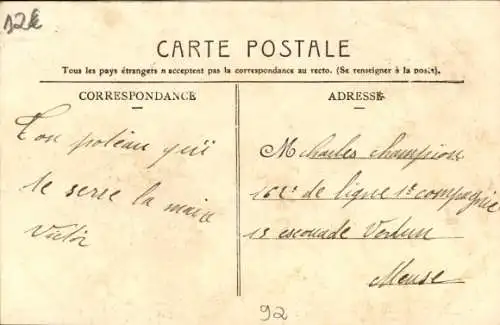 12€
CARTE POSTALE
Tous les pays étrangers n'acceptent pas la correspondance au recto. (Se renseigner à la poste).
CORRESPONDANCE
ADRESSE
Ton poteau qui
te serre la main
Victor
M Charles Champion
162e de ligne 1e compagnie
15 escouade Verdun
Meuse
92